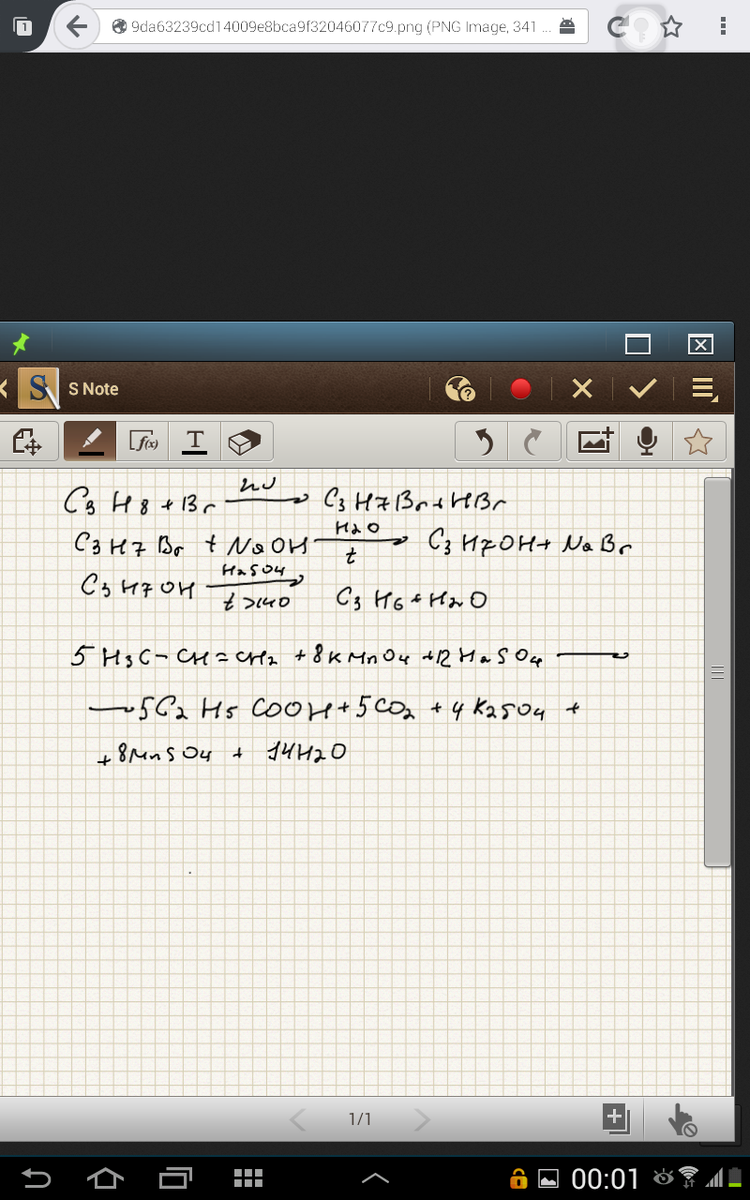 1
9da63239cd14009e8bca9f32046077c9.png (PNG Image, 341 ...
S Note
f(x) T
C3 H8 + Br hν→ C3 H7 Br + HBr
C3 H7 Br + NaOH H2O→ t C3 H7OH + NaBr
C3 H7 OH H2SO4→ t >140 C3 H6 + H2O
5 H3C - CH = CH2 + 8KMnO4 + 12 H2SO4 —
— 5C2 H5 COOH + 5CO2 + 4 K2SO4 +
+ 8MnSO4 + 14H2O
1/1
00:01